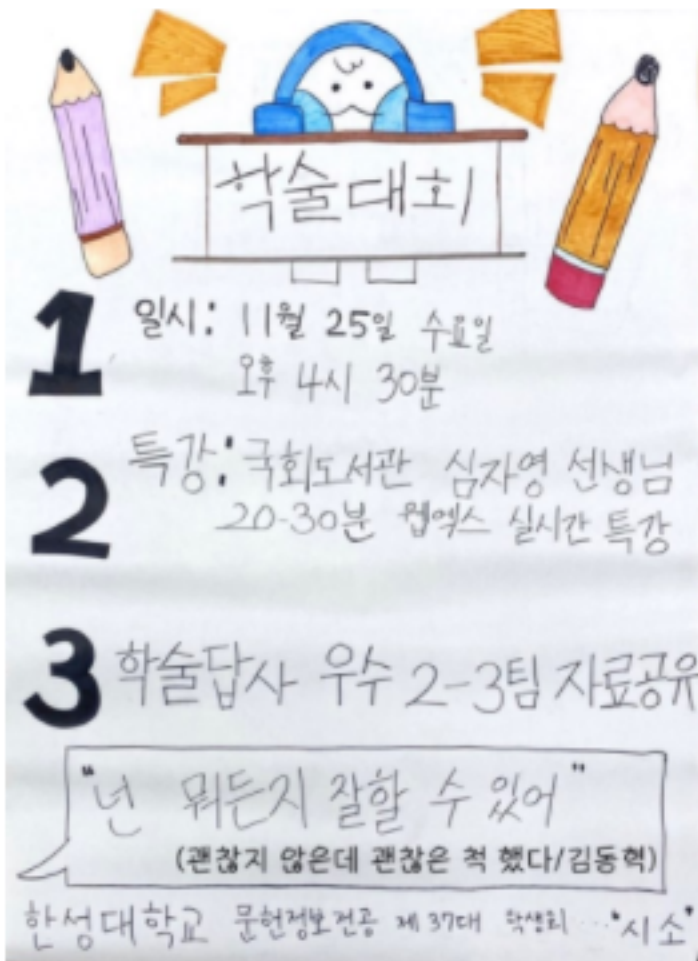 학술대회
1 일시: 11월 25일 수요일
오후 4시 30분
2 특강: 국회도서관 심자영 선생님
20-30분 웹엑스 실시간 특강
3 학술답사 우수 2-3팀 자료공유
"넌 뭐든지 잘할 수 있어"
(괜찮지 않은데 괜찮은 척 했다/김동혁)
한성대학교 문헌정보전공 제 37대 학생회 ... "시소"